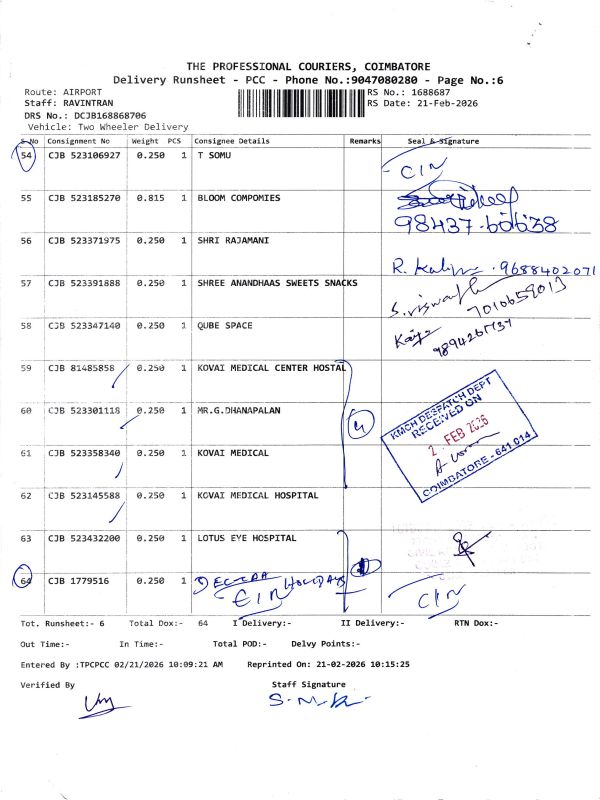 THE PROFESSIONAL COURIERS, COIMBATORE
Delivery Runsheet - PCC - Phone No.:9047080280 - Page No.:6
Route: AIRPORT RS No.: 1688687
Staff: RAVINTRAN RS Date: 21-Feb-2026
DRS No.: DCJB168868706
Vehicle: Two Wheeler Delivery
S No Consignment No Weight PCS Consignee Details Remarks Seal & Signature
54 CJB 523106927 0.250 1 T SOMU CIN
55 CJB 523185270 0.815 1 BLOOM COMPOMIES
98437-60638
56 CJB 523371975 0.250 1 SHRI RAJAMANI
R. 9688402071
57 CJB 523391888 0.250 1 SHREE ANANDHAAS SWEETS SNACKS
7010659013
58 CJB 523347140 0.250 1 QUBE SPACE
59 CJB 81485858 0.250 1 KOVAI MEDICAL CENTER HOSTAL
60 CJB 523301118 0.250 1 MR.G.DHANAPALAN 4
KMCH DESPATCH DEPT
RECEIVED ON
2 FEB 2026
COIMBATORE - 641 014
61 CJB 523358340 0.250 1 KOVAI MEDICAL
62 CJB 523145588 0.250 1 KOVAI MEDICAL HOSPITAL
63 CJB 523432200 0.250 1 LOTUS EYE HOSPITAL
64 CJB 1779516 0.250 1 HOLIDAYS
CIN
Tot. Runsheet:- 6 Total Dox:- 64 I Delivery:- II Delivery:- RTN Dox:-
Out Time:- In Time:- Total POD:- Delvy Points:-
Entered By :TPCPCC 02/21/2026 10:09:21 AM Reprinted On: 21-02-2026 10:15:25
Verified By Staff Signature